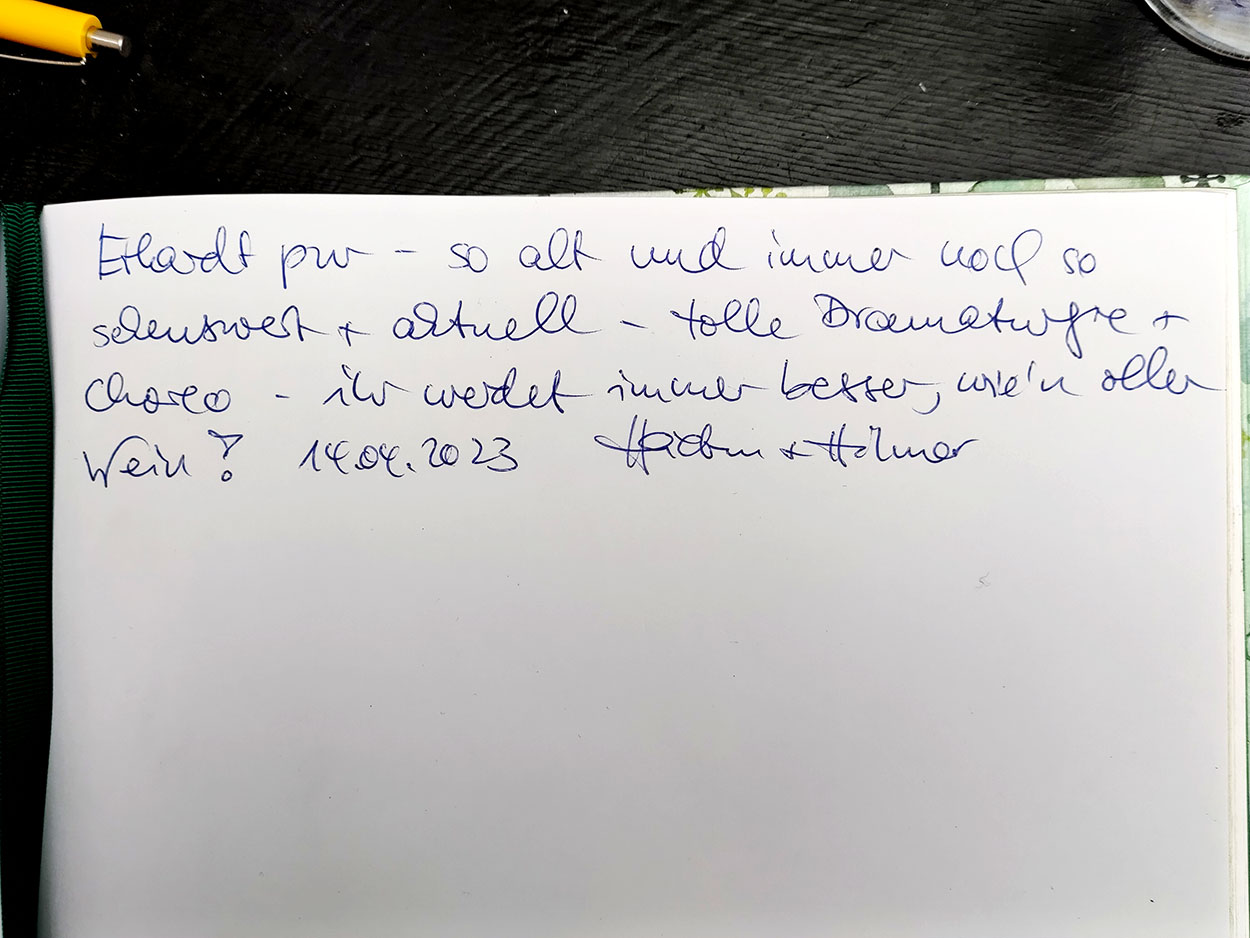 Erhardt pur – so alt und immer noch so
sehenswert + aktuell – tolle Dramaturgie +
Choreo – ihr werdet immer besser, wie'n oller
Wein! 14.04.2023 + Hilmar